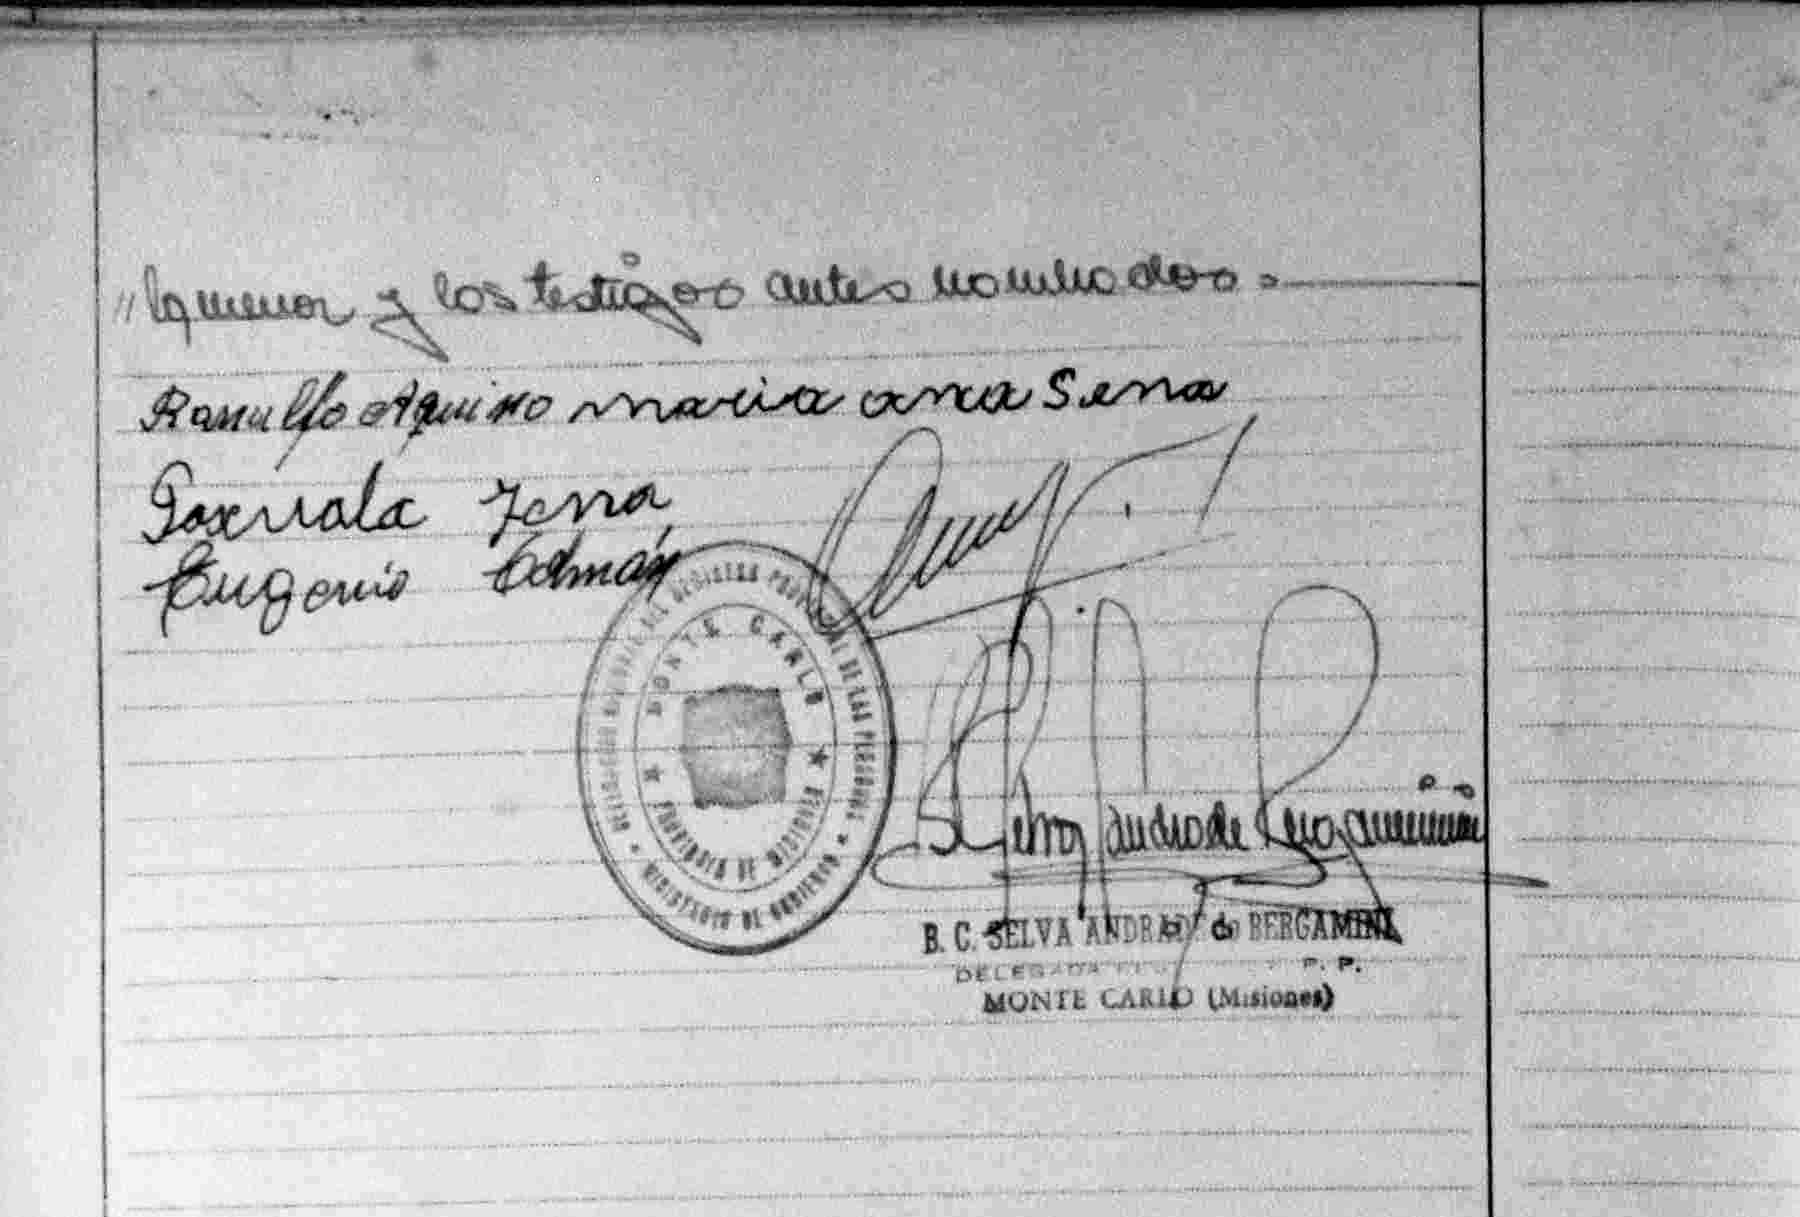 "la menor y los testigos antes nombrados.
Ranulfo Aquino maria ana Sena
Sena
Eugenio Colmán
DELEGACION DEL REGISTRO PROVINCIAL DE LAS PERSONAS
MONTE CARLO
PROVINCIA DE MISIONES
MINISTERIO DE GOBIERNO
Selva Andrade Bergamini
B. C. SELVA ANDRADE de BERGAMINI
DELEGADA P. P.
MONTE CARLO (Misiones)